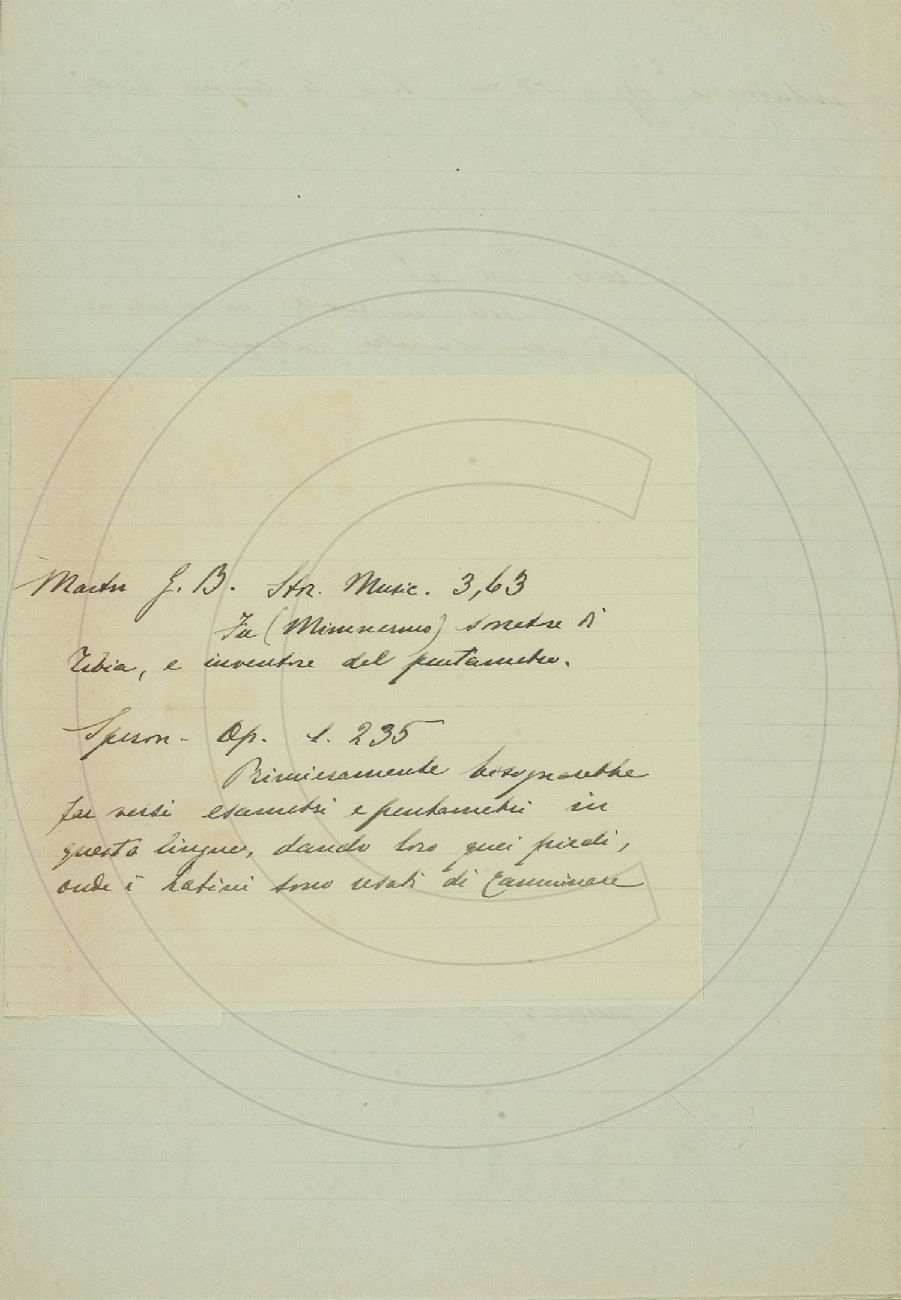 Martin G. B. Stor. Music. 3,63
Fu (Mimnermo) sonatore di
Tibia, e inventore del pentametro.
Speron. Op. 1. 235
Primieramente bisognarebbe
far versi esametri e pentametri in
questa lingua, dando loro quei piedi,
onde i Latini sono usati di camminare